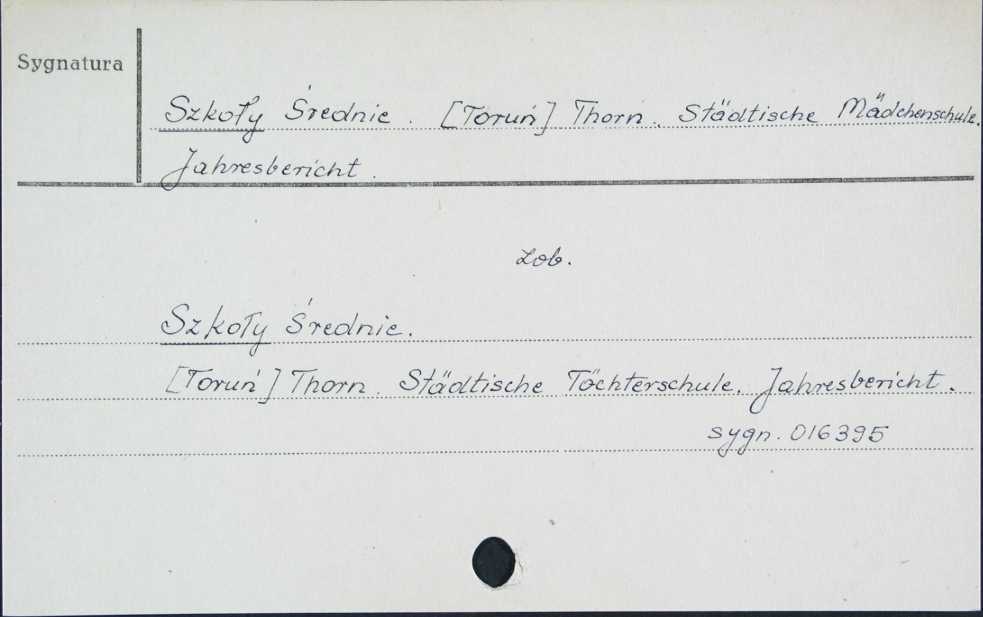 Sygnatura
Szkoły Średnie. [Toruń] Thorn. Städtische Mädchenschule.
Jahresbericht.
Zob.
Szkoły Średnie.
[Toruń] Thorn. Städtische Töchterschule. Jahresbericht.
sygn. 016395